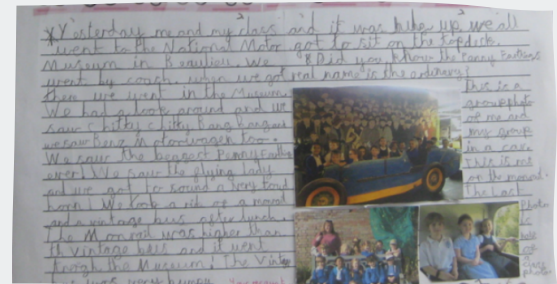 Yesterday me and my class
went to the National Motor
Museum in Beaulieu. We
went by coach. When we got
there we went in the Museum.
We had a look around and we
saw Chitty Chitty Bang Bang and
we saw Benz Motorwagen too.
We saw the Penny Farthing
ever! We saw the flying lady
and we got to sound a very loud
horn! We took a ride on a monorail
and a vintage bus after lunch.
The Monorail was higher than
th Vintage bus and it went
through the Museum! The Vintage
bus was very bumpy
and it was hike up we all
got to sit on the topdeck.
Did you know the Penny Farthings
real name is the ordinary?
This is a
group photo
of me and
my group
in a car.
This is me
on the monorail.
The last
Photo
is
of
a